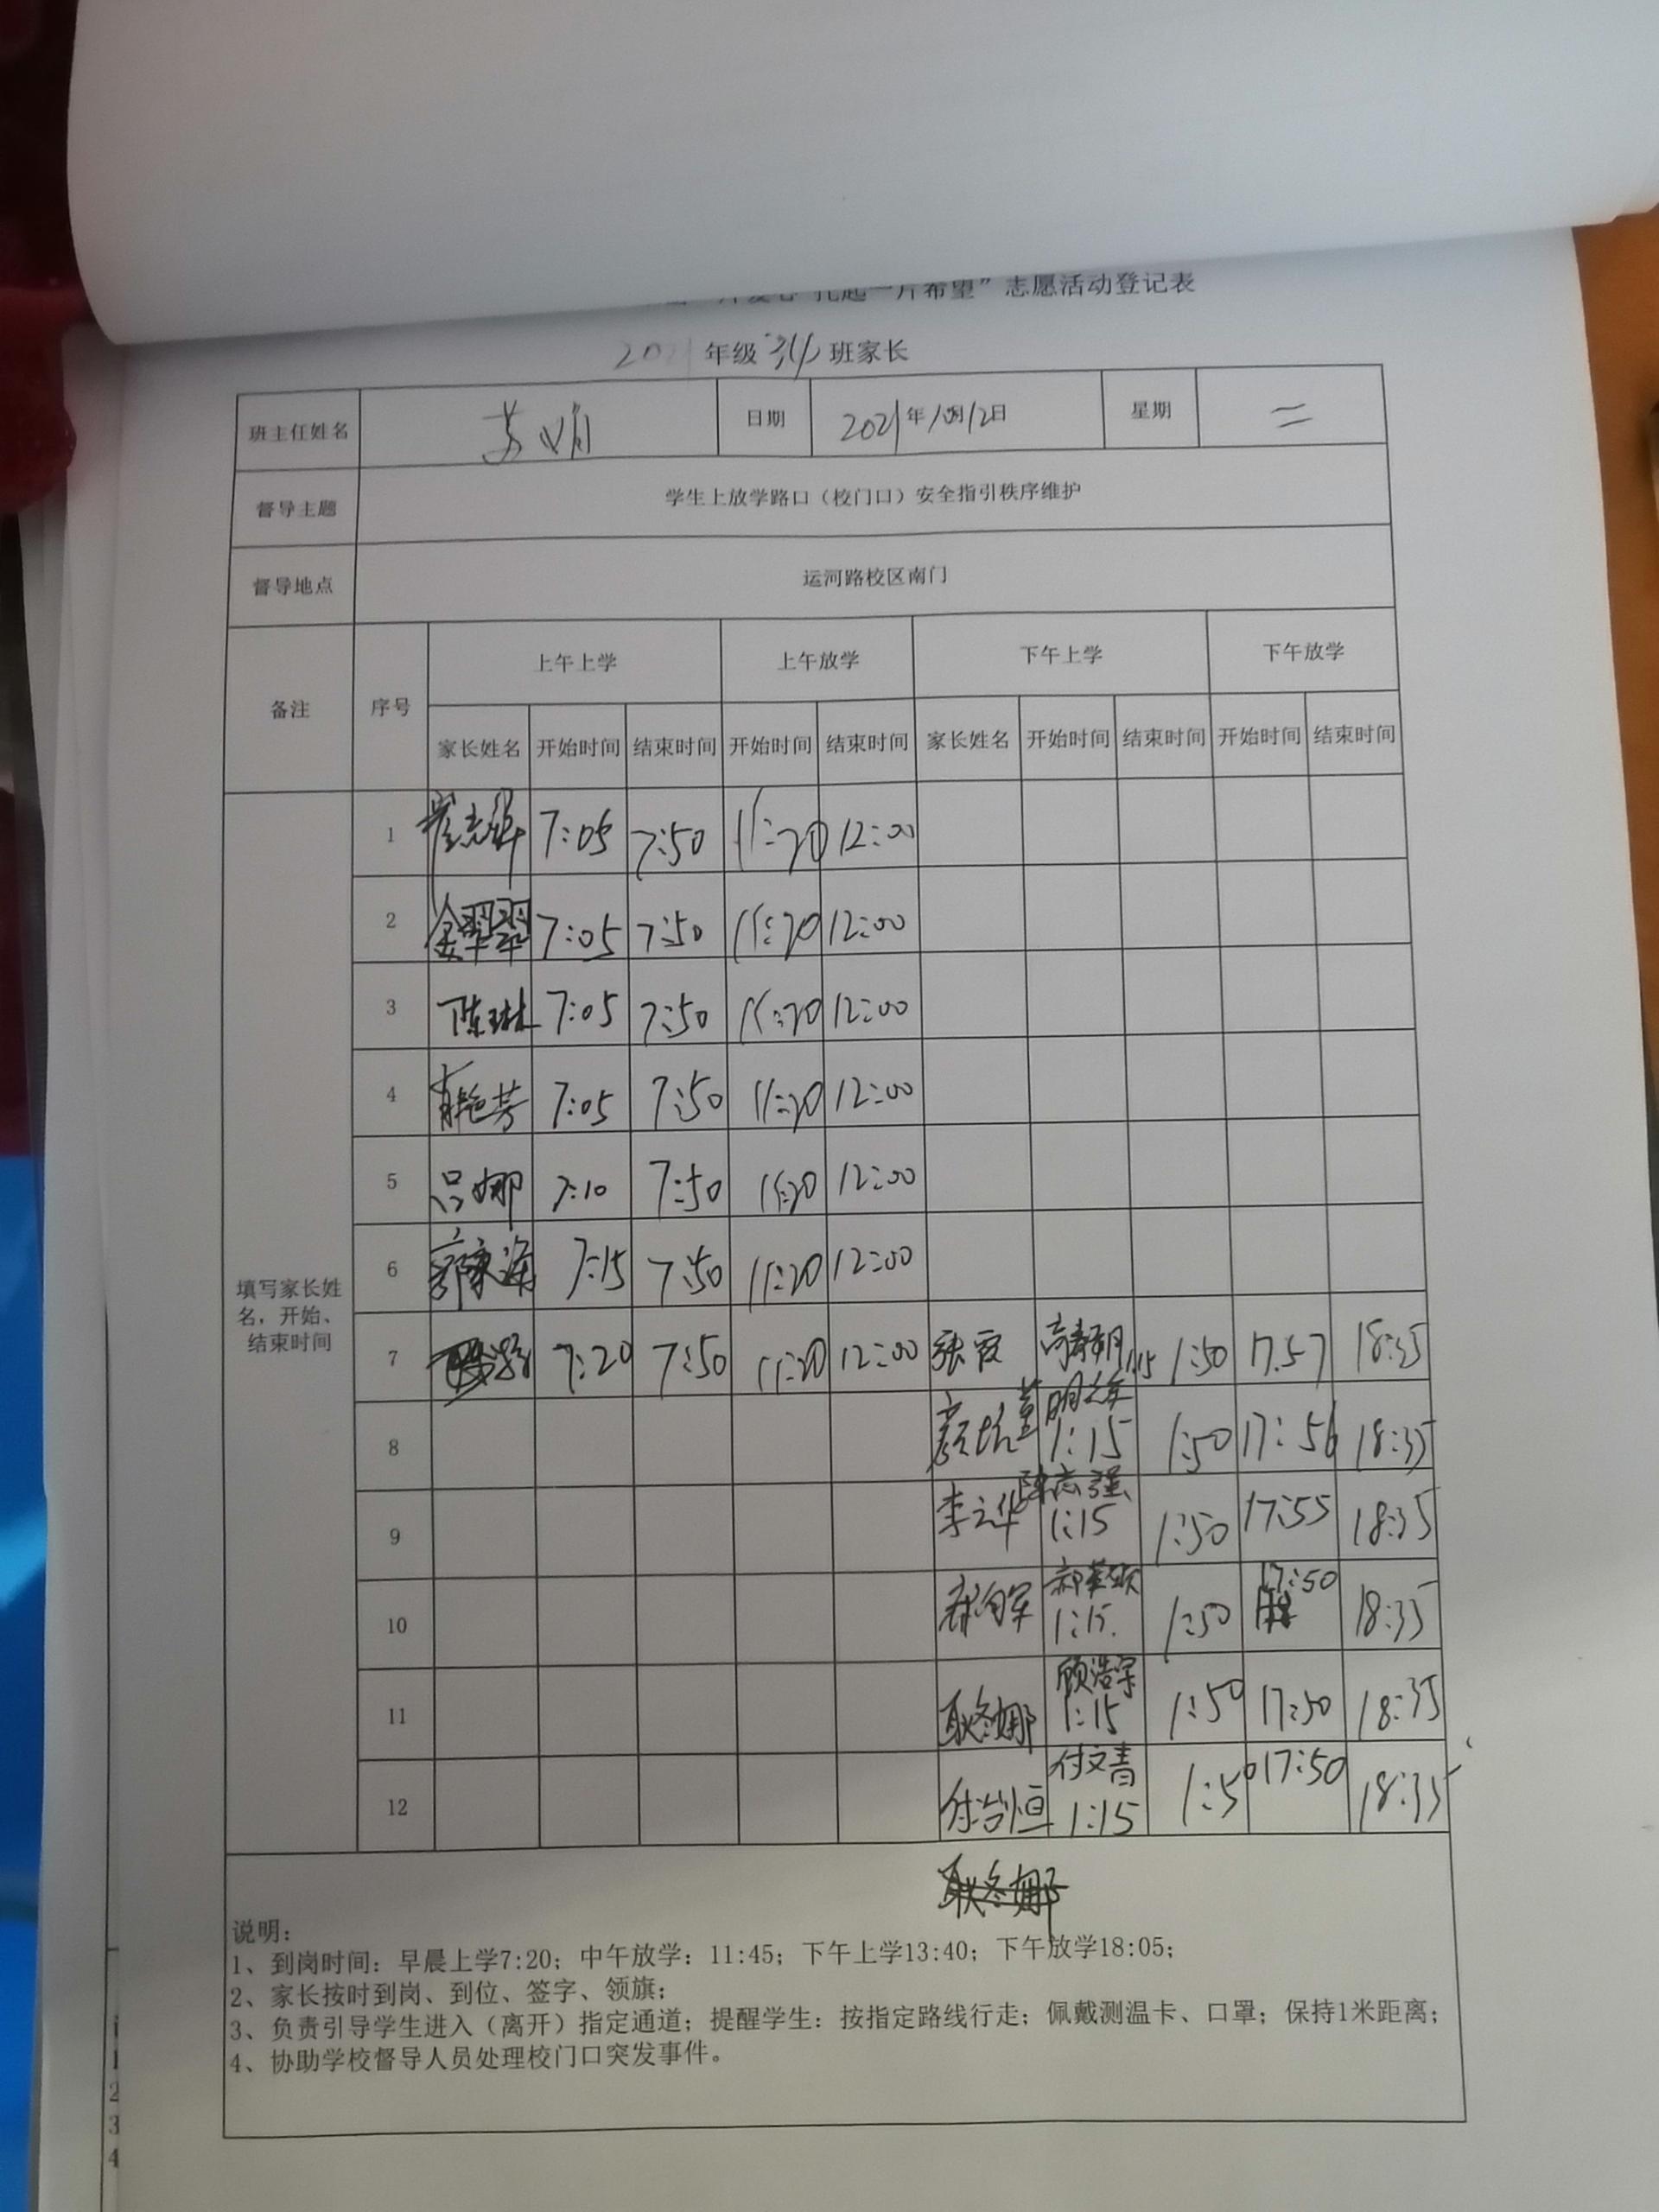 一片希望”志愿活动登记表
年级 班家长
班主任姓名 苏 娟 日期 2021年10月12日 星期 二
督导主题 学生上放学路口（校门口）安全指引秩序维护
督导地点 运河路校区南门
备注 序号 上午上学 上午放学 下午上学 下午放学
家长姓名 开始时间 结束时间 开始时间 结束时间 家长姓名 开始时间 结束时间 开始时间 结束时间
填写家长姓名，开始、结束时间
1 7:05 7:50 11:20 12:00
2 金翠翠 7:05 7:50 11:20 12:00
3 陈琳 7:05 7:50 11:20 12:00
4 7:05 7:50 11:20 12:00
5 吕娜 7:10 7:50 11:20 12:00
6 7:15 7:50 11:20 12:00
7 7:20 7:50 11:20 12:00 张霞 1:15 1:50 17.57 18:35
8 1:15 1:50 17:56 18:35
9 李云华 陈志强 1:15 1:50 17:55 18:35
10 1:15. 1:50 17:50 18:35
11 耿冬娜 顾浩宗 1:15 1:50 17:50 18:35
12 付治恒 付文青 1:15 1:50 17:50 18:35
耿冬娜
说明：
1、到岗时间：早晨上学7:20；中午放学：11:45；下午上学13:40；下午放学18:05；
2、家长按时到岗、到位、签字、领旗；
3、负责引导学生进入（离开）指定通道；提醒学生：按指定路线行走；佩戴测温卡、口罩；保持1米距离；
4、协助学校督导人员处理校门口突发事件。